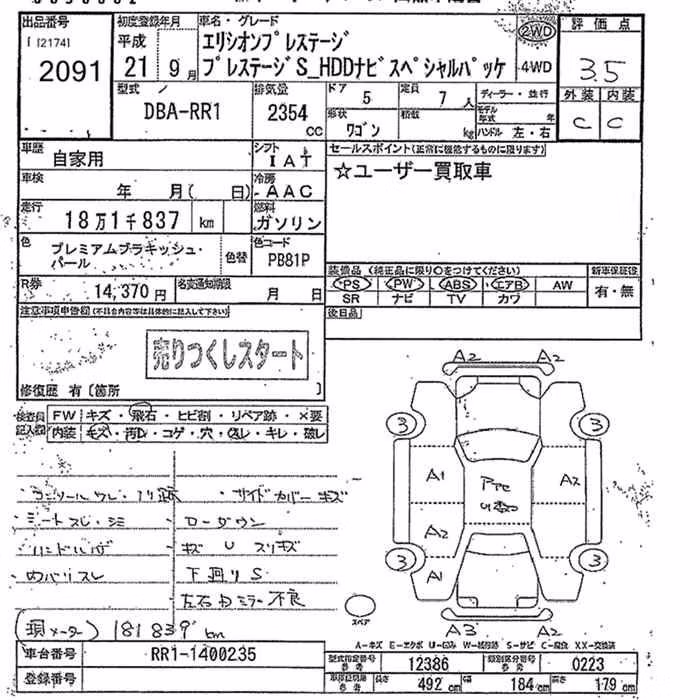 出品番号 初度登録年月 車名・グレード 評価点
[12174]
2091
平成 21 9月
エリシオンプレステージ
プレステージS_HDDナビスペシャルパッケ
2WD
4WD
3.5
型式 DBA-RR1
排気量 2354 CC
ドア 5 定員 7人
ディーラー・並行
形状 ワゴン 積載 kg
モデル年式 年
ハンドル 左・右
外装 内装
C C
車歴 自家用
シフト IAT
セールスポイント(正常に機能するものに限ります)
☆ユーザー買取車
車検 年 月( 日)
冷房 AAC
走行 18万1千837 km
燃料 ガソリン
色 プレミアムブラキッシュ・パール
色替
色コード PB81P
装備品(純正品に限り○をつけてください) 新車保証書
PS PW ABS エアB AW 有・無
SR ナビ TV カワ
R券 14,370円
名変通知期限 月 日
後日品
注意事項申告欄(不具合内容等は具体的に記入して下さい)
売りつくしスタート
修復歴 有〔箇所 〕
検査員記入欄
FW キズ・飛石・ヒビ割・リペア跡・×要
内装 キズ・汚レ・コゲ・穴・スレ・キレ・破レ
A2 A2
3 3
A1 A2
A2
A1
3 3
A3 A2
・サイドカバーキズ
ローダウン
キズ U スリキズ
下廻り S
左右ドミラー不良
(現メーター) 181839 km
スペア
A-キズ E-エクボ U-凹み W-補修跡 S-サビ C-腐食 XX-交換済
車台番号 RR1-1400235
登録番号
型式指定番号 参考 12386 類別区分番号 参考 0223
車検証記載 参考 長さ 492 cm 幅 184 cm 高さ 179 cm